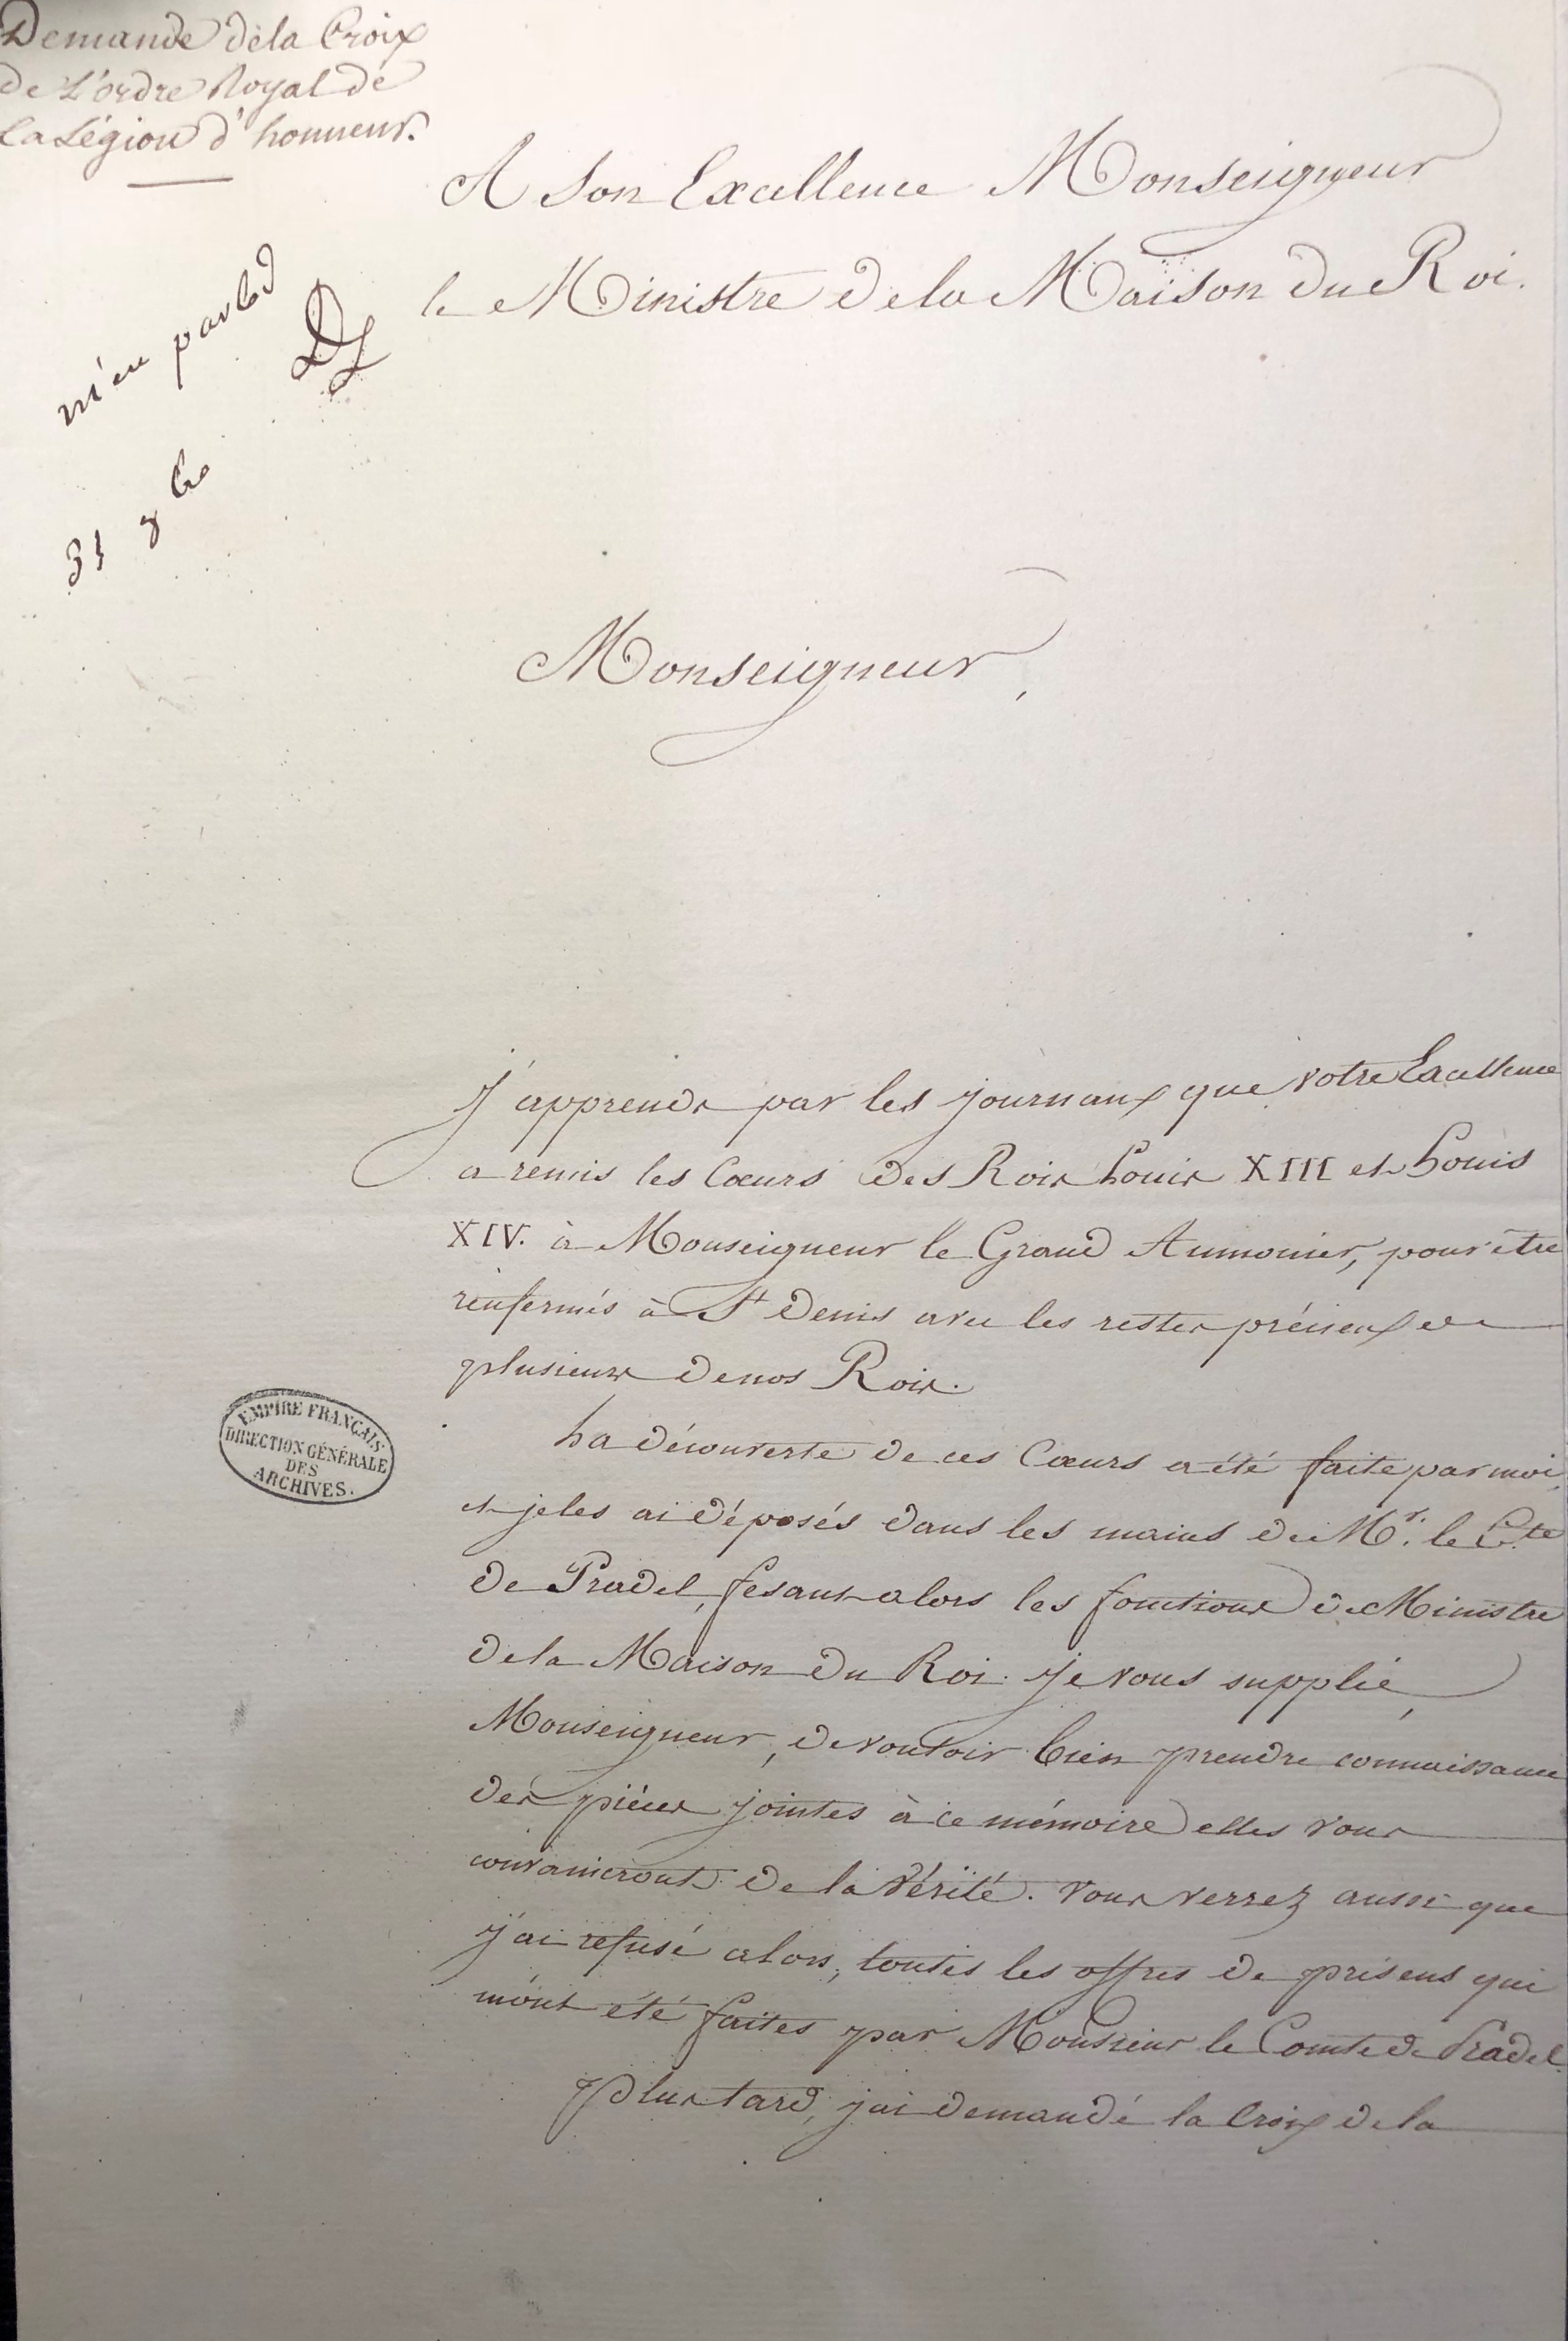 Demande de la Croix
de L'ordre Royal de
La Légion d'honneur.
A Son Excellence Monseigneur
le Ministre de la Maison du Roi.
m'en parler
31 8bre
Monseigneur,
J'apprends par les journaux que votre Excellence
a remis les Cœurs des Rois Louis XIII et Louis
XIV. à Monseigneur le Grand Aumonier, pour être
renfermés à St Denis avec les restes précieux de
plusieurs de nos Rois.
La découverte de ces Cœurs a été faite par moi,
et je les ai déposés dans les mains de Mr. le Cte
de Pradel, fesant alors les fonctions de Ministre
de la Maison du Roi. je vous supplie,
Monseigneur, de vouloir bien prendre connaissance
des pièces jointes à ce mémoire elles vous
convaincront de la vérité. vous verrez aussi que
j'ai refusé alors, toutes les offres de présens qui
m'ont été faites par Monsieur le Comte de Pradel.
Plus tard, j'ai demandé la Croix de la
EMPIRE FRANÇAIS
DIRECTION GÉNÉRALE
DES
ARCHIVES.